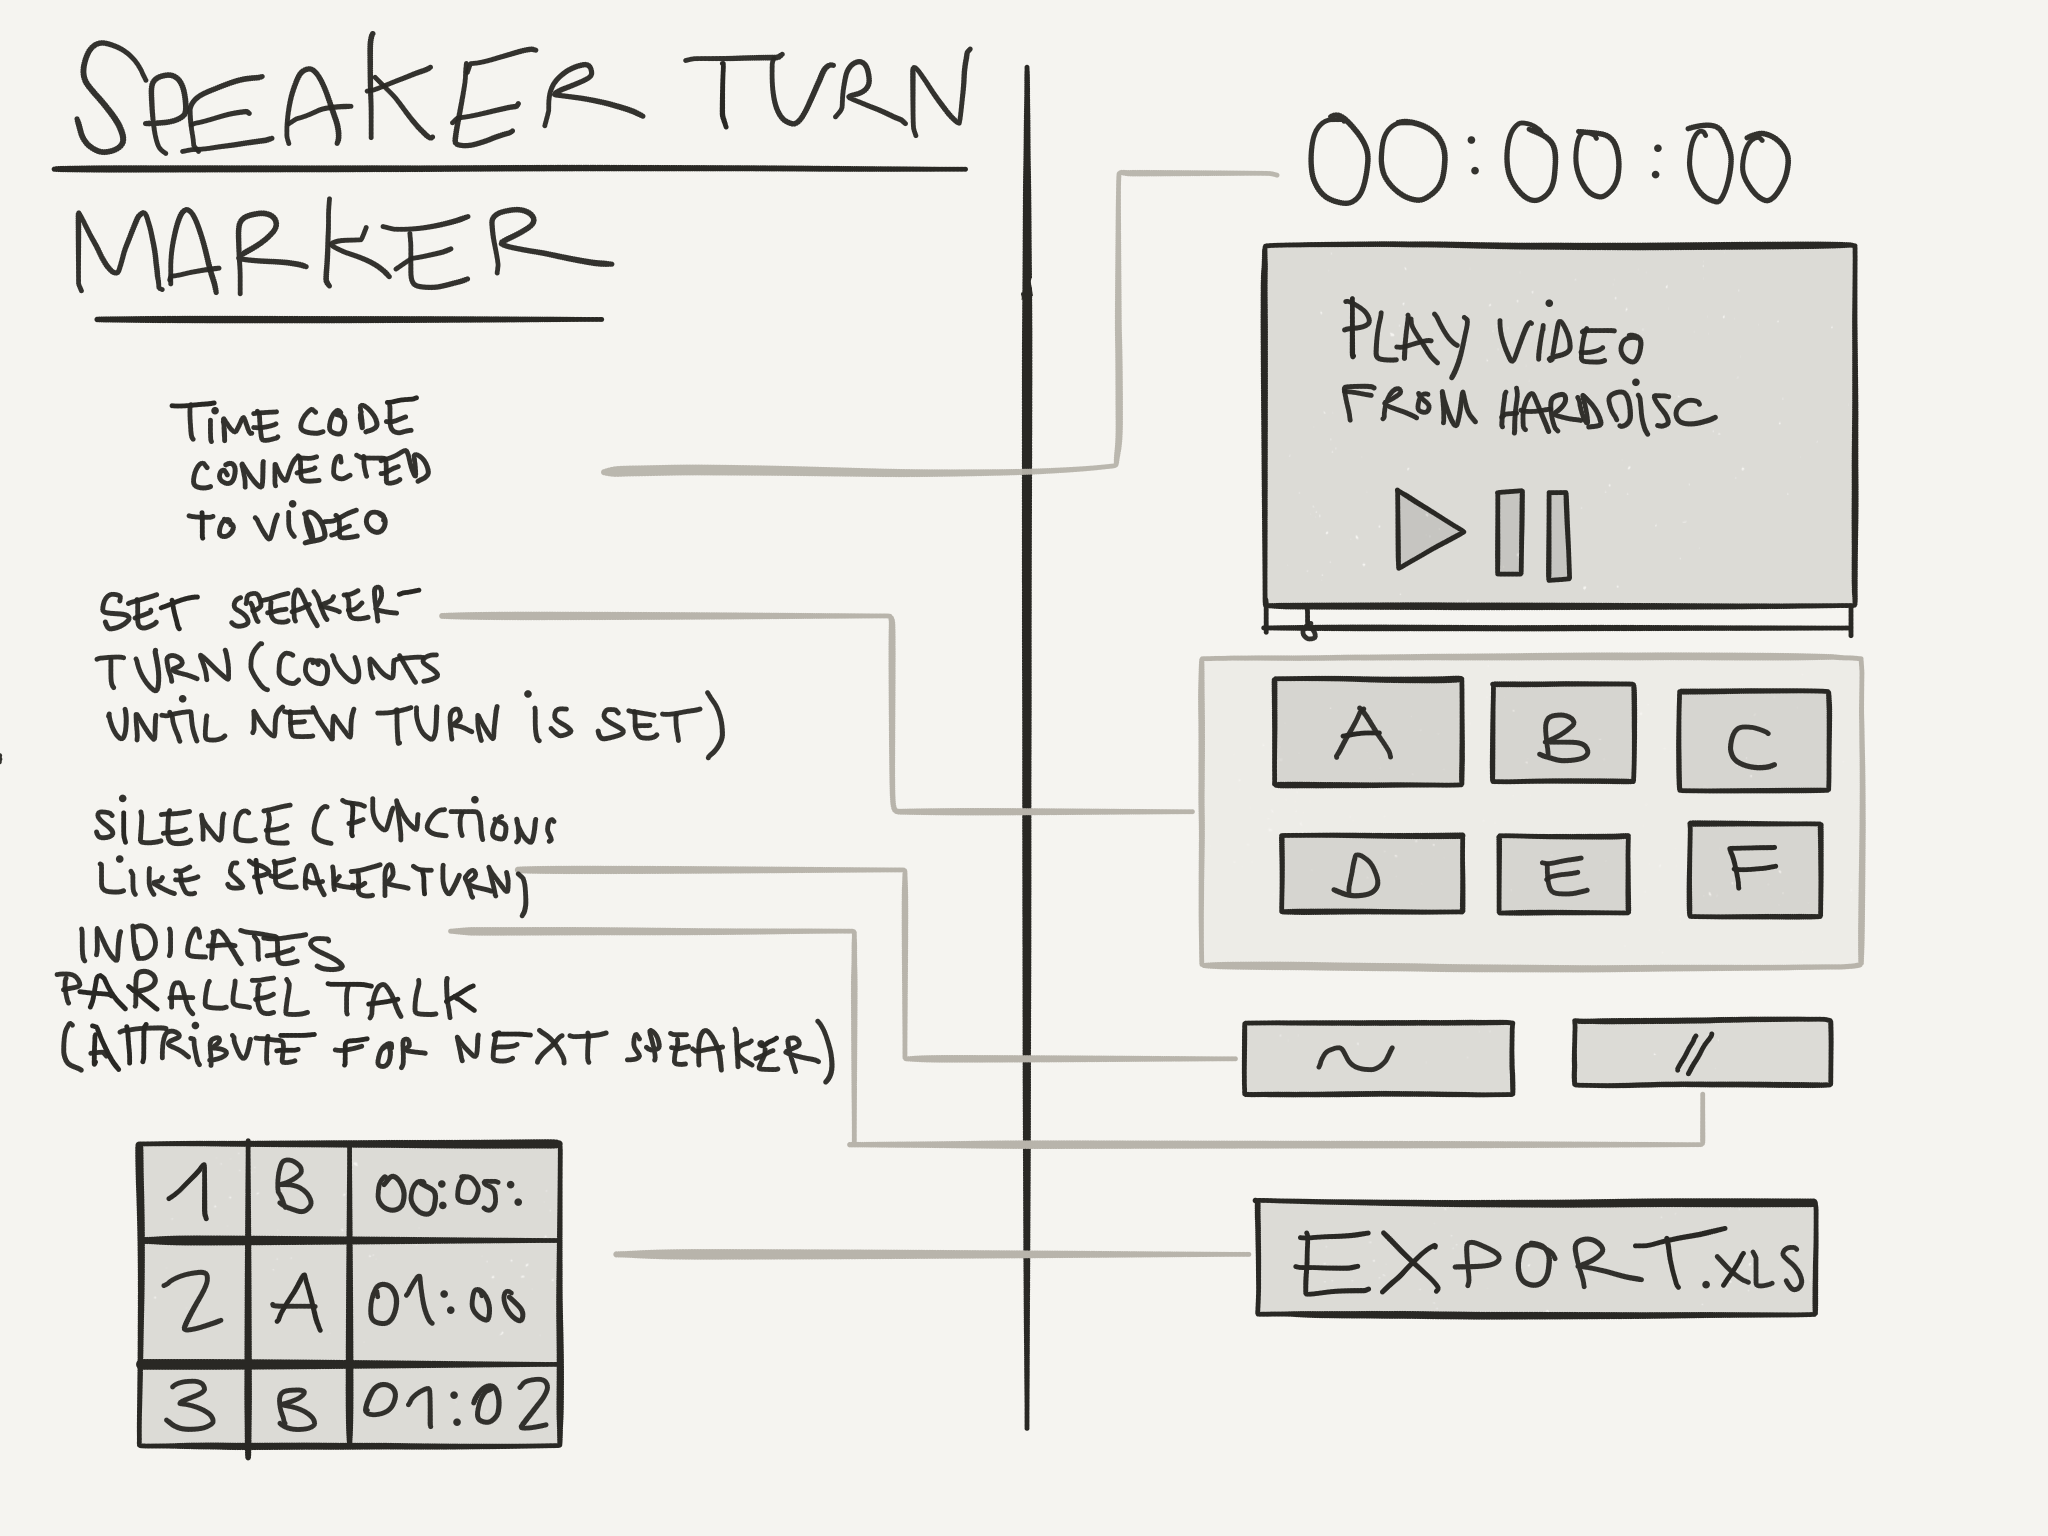 SPEAKER TURN
MARKER
TiME CODE
CONNECTED
TO ViDEO
SET SPEAKER
TURN (COUNTS
UNTiL NEW TURN iS SET)
SiLENCE (FUNCTiONS
LiKE SPEAKERTURN)
INDICATES
PARALLEL TALK
(ATTRiBUTE FOR NEXT SPEAKER)
1 B 00:05:
2 A 01:00
3 B 01:02
00:00:00
PLAY ViDEO
FROM HARDDiSC
A B C
D E F
~ //
EXPORT.XLS